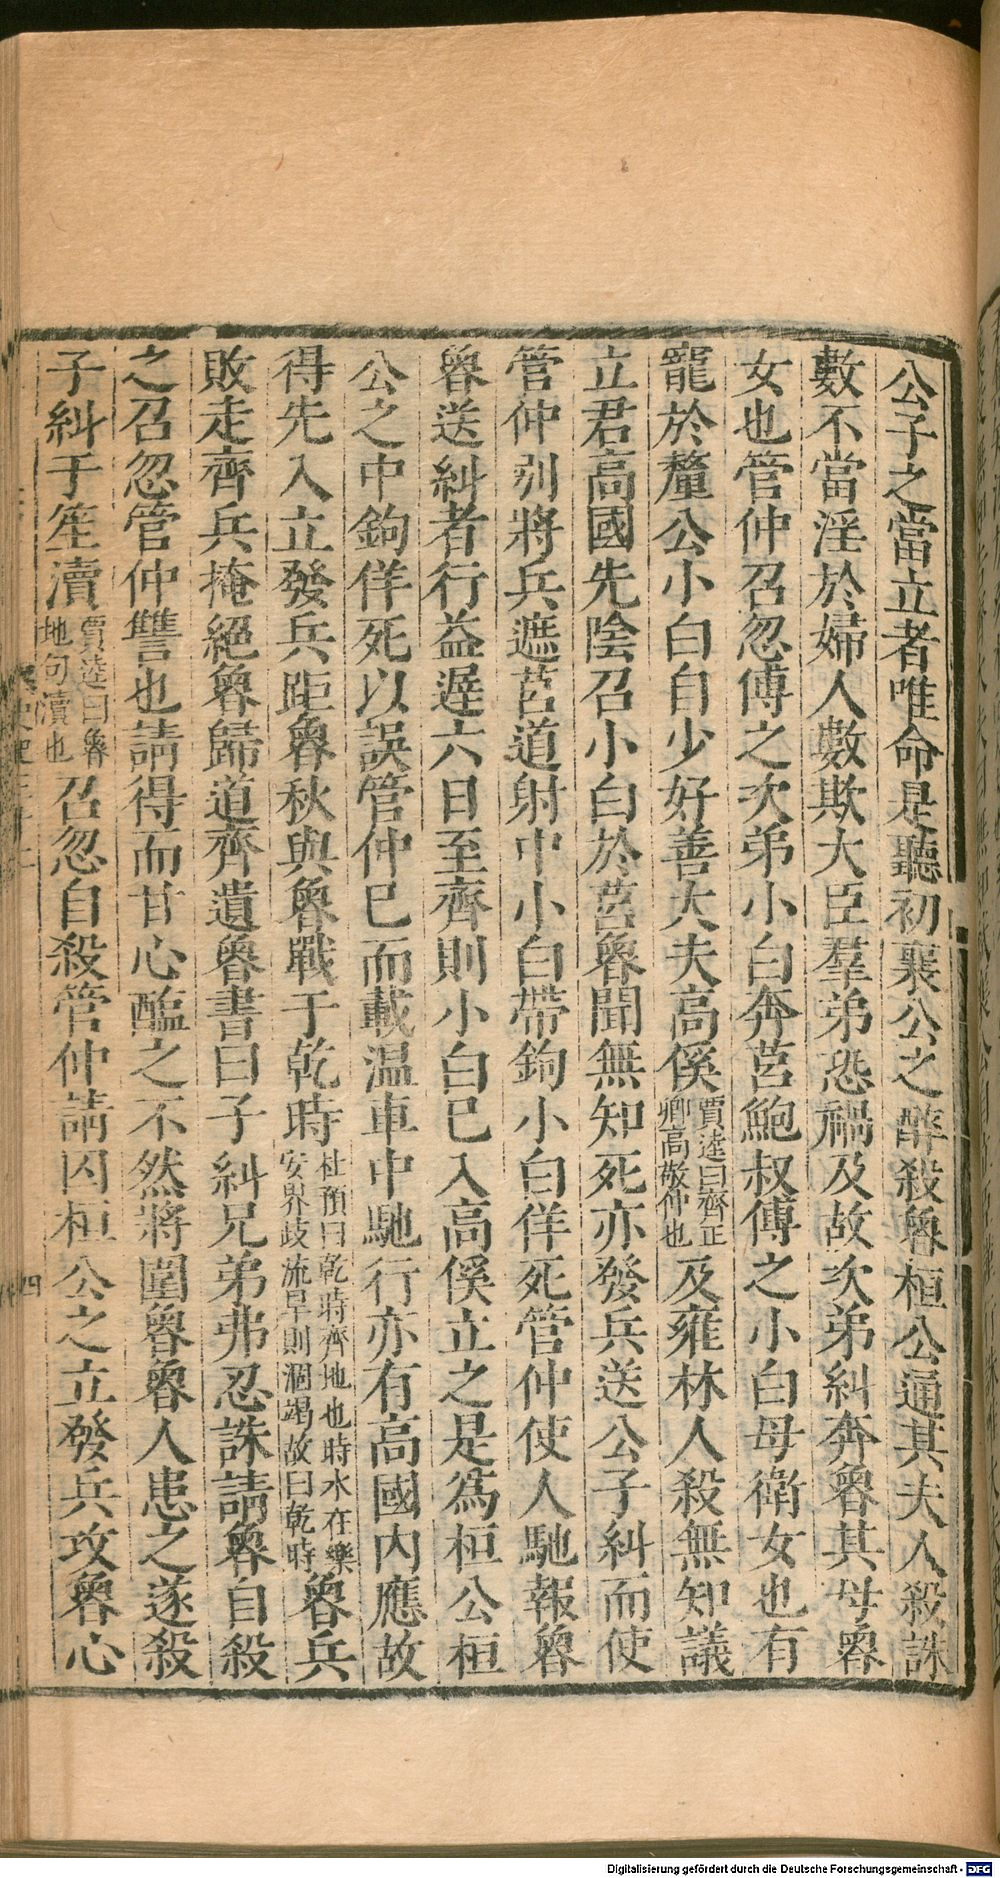 公子之當立者唯命是聽初襄公之醉殺魯桓公通其夫人殺誅
數不當淫於婦人數欺大臣羣弟恐禍及故次弟糾奔魯其母魯
女也管仲召忽傅之次弟小白奔莒鮑叔傅之小白母衛女也有
寵於釐公小白自少好善大夫高傒賈逵曰齊正卿高敬仲也及雍林人殺無知議
立君高國先陰召小白於莒魯聞無知死亦發兵送公子糾而使
管仲別將兵遮莒道射中小白帶鉤小白佯死管仲使人馳報魯
魯送糾者行益遲六日至齊則小白已入高傒立之是為桓公桓
公之中鉤佯死以誤管仲已而載温車中馳行亦有高國內應故
得先入立發兵距魯秋與魯戰于乾時杜預曰乾時齊地也時水在樂安界歧流旱則涸竭故曰乾時魯兵
敗走齊兵掩絕魯歸道齊遺魯書曰子糾兄弟弗忍誅請魯自殺
之召忽管仲讐也請得而甘心醢之不然將圍魯魯人患之遂殺
子糾于笙瀆賈逵曰魯地句瀆也召忽自殺管仲請囚桓公之立發兵攻魯心
四
Digitalisierung gefördert durch die Deutsche Forschungsgemeinschaft - DFG